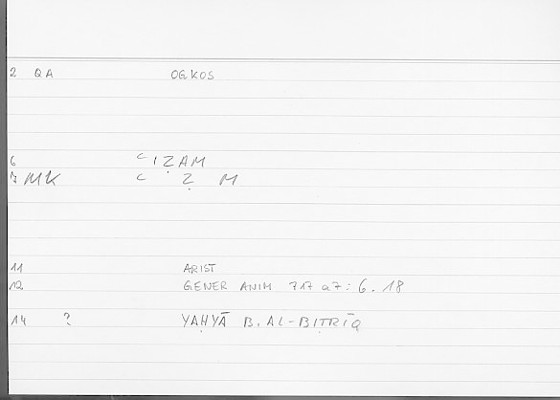 2 QA OGKOS
6 ʿIẒAM
7 MK ʿ Ẓ M
11 ARIST
12 GENER ANIM 717 a7 : 6.18
14 ? YAḤYĀ B. AL-BIṬRĪQ